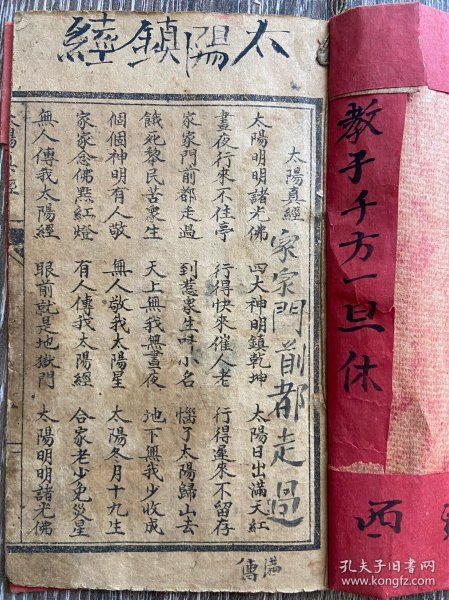 太陽鎮經
太陽真經
太陽明明諸光佛 四大神明鎮乾坤 太陽日出滿天紅
晝夜行來不住亭 行得快來催人老 行得遲來不留存
家家門前都走過 到惹衆生呌小名 惱了太陽歸山去
餓死黎民苦衆生 天上無我無晝夜 地下無我少收成
個個神明有人敬 無人敬我太陽星 太陽冬月十九生
家家念佛點紅燈 有人傳我太陽經 合家老少免災星
無人傳我太陽經 眼前就是地獄門 太陽明明諸光佛
家家門前都走過
傳
教子千方一旦休
西
孔夫子旧书网
book.kongfz.com